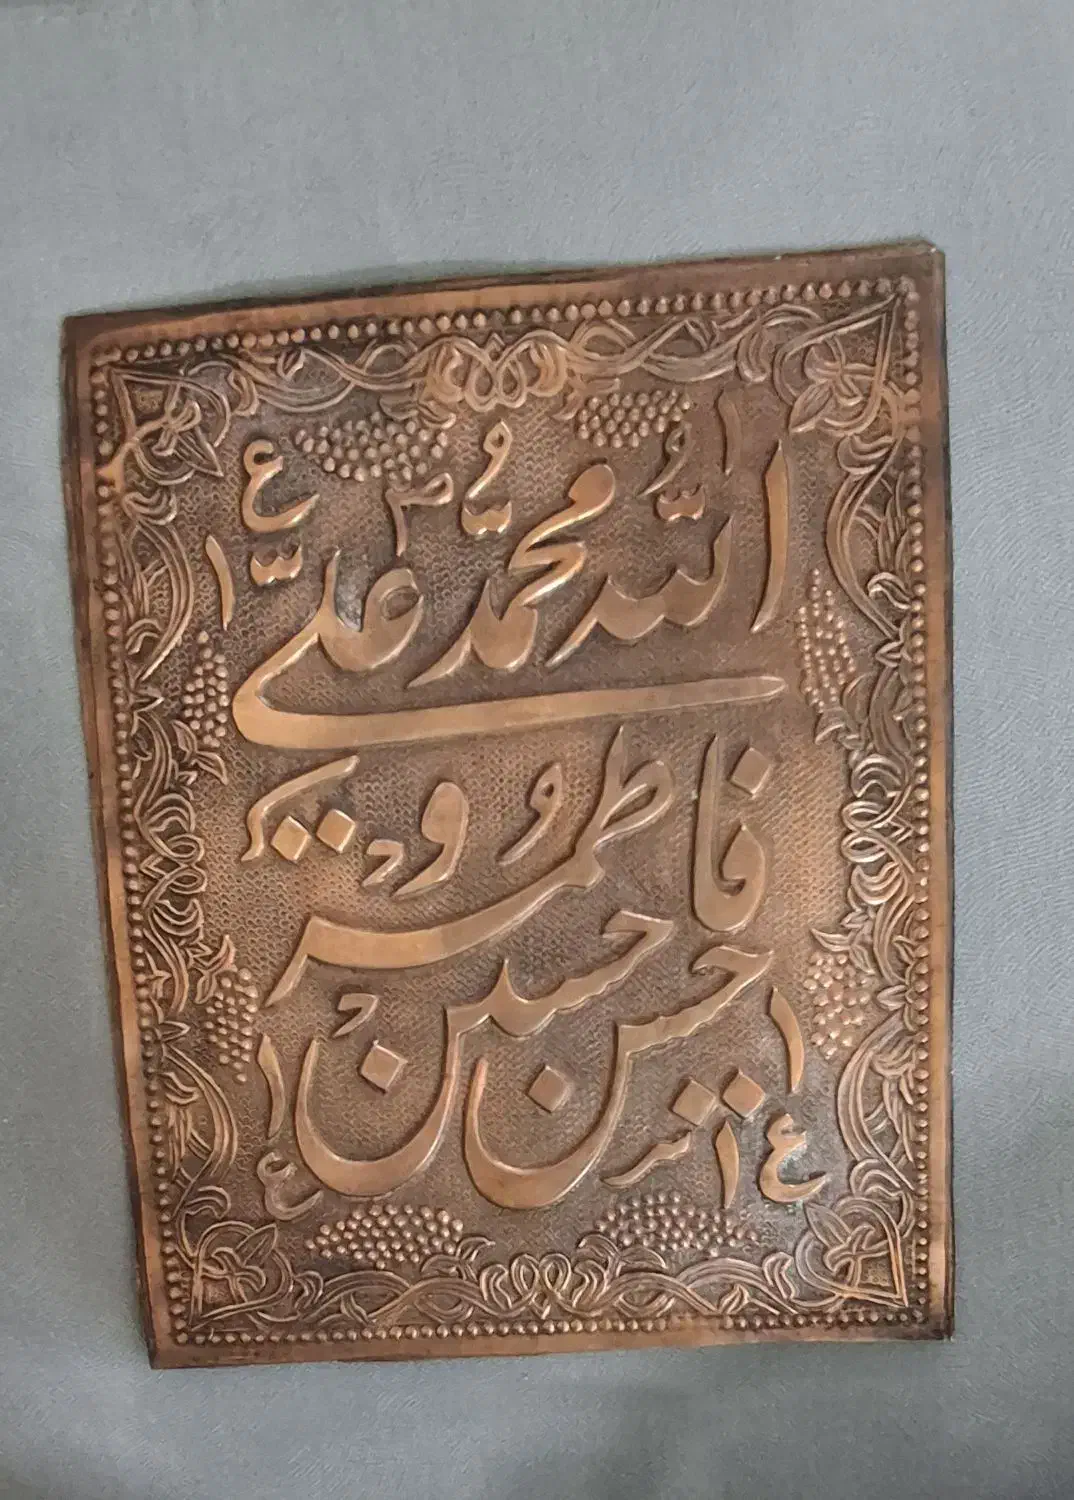 الله محمد ص علی ع
فاطمه
حسن ع حسین ع